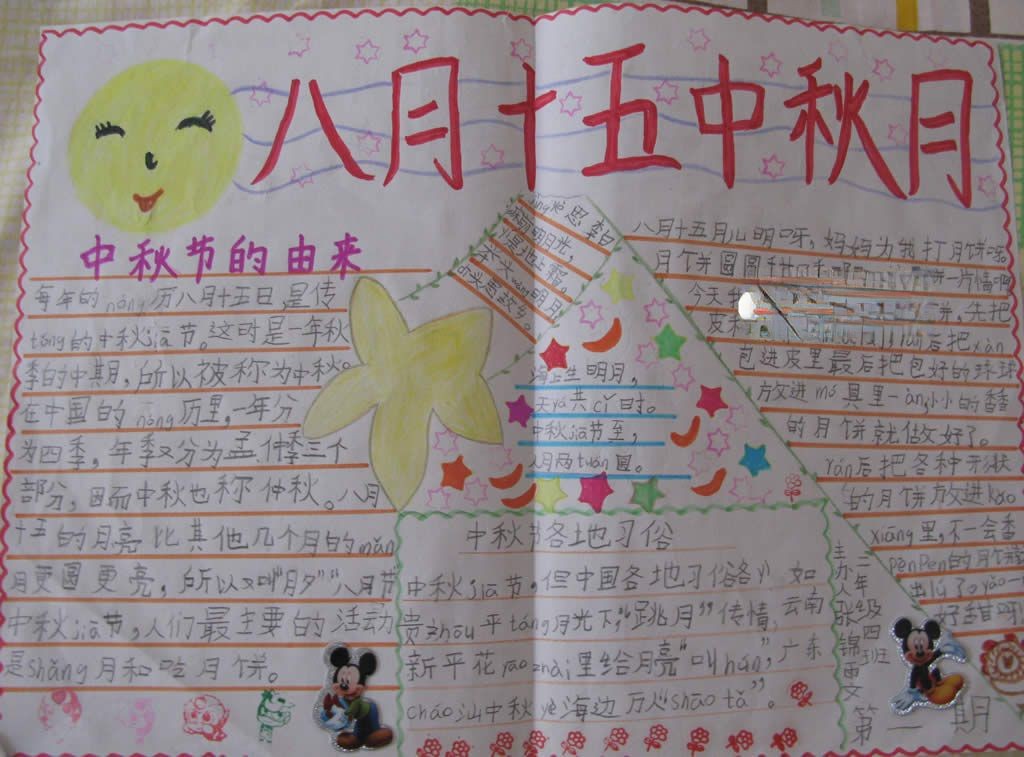 八月十五中秋月
中秋节的由来
每年的nóng历八月十五日是传
tǒng的中秋jiā节。这时是一年秋
季的中期，所以被称为中秋。
在中国的nóng历里，一年分
为四季，年季又分为孟仲季三个
部分，因而中秋也称仲秋。八月
十五的月亮比其他几个月的mǎn
月更圆更亮，所以又叫“月夕”“八月节
中秋jiā节，人们最主要的活动
是shǎng月和吃月饼。
思 李白
明月光，
地上霜。
头 明月
故乡。
海上生明月，
天yá共cǐ时。
中秋jiā节至，
人月两tuán圆。
八月十五月儿明呀，妈妈为我打月饼
月饼圆圆
今天
后把xàn
包进皮里最后把包好的球球
放进mó具里一 小小的香香
的月饼就做好了。
rán后把各种形状
的月饼放进kǎo
xiāng里，不一会香
pēnpēn的月饼
出lú了
好甜呀
中秋节各地习俗
中秋jiā节，但中国各地习俗各 如
贵zhōu平táng月光下，“跳月”传情，云南
新平花 里给月亮“叫hún”，广东
cháo汕中秋 海边 “shāo tǎ”。
主办人 张锦雨文
二年级四班
第一期